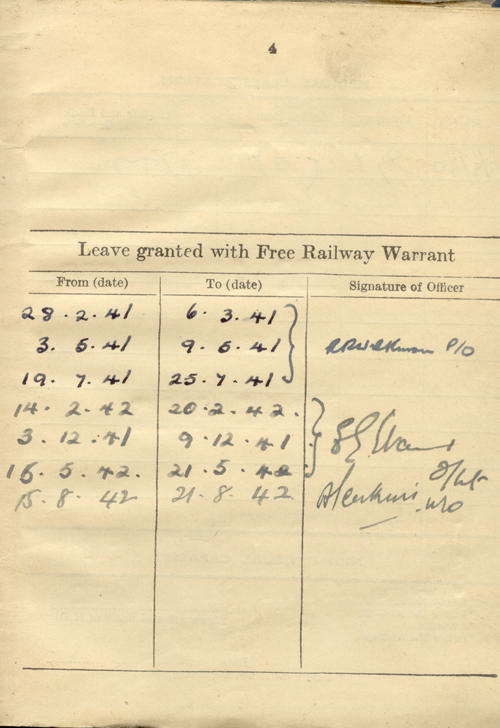 4
Leave granted with Free Railway Warrant
From (date) To (date) Signature of Officer
28 . 2 . 41 6 . 3 . 41
3 . 5 . 41 9 . 5 . 41 P/O
19 . 7 . 41 25 . 7 . 41
14 . 2 . 42 20 . 2 . 42 .
3 . 12 . 41 9 . 12 . 41 Evans
15 . 5 . 42 . 21 . 5 . 42
15 . 8 . 42 21 . 8 . 42